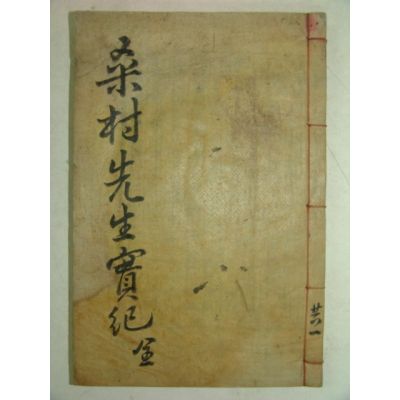 桑村先生實紀 全
共一